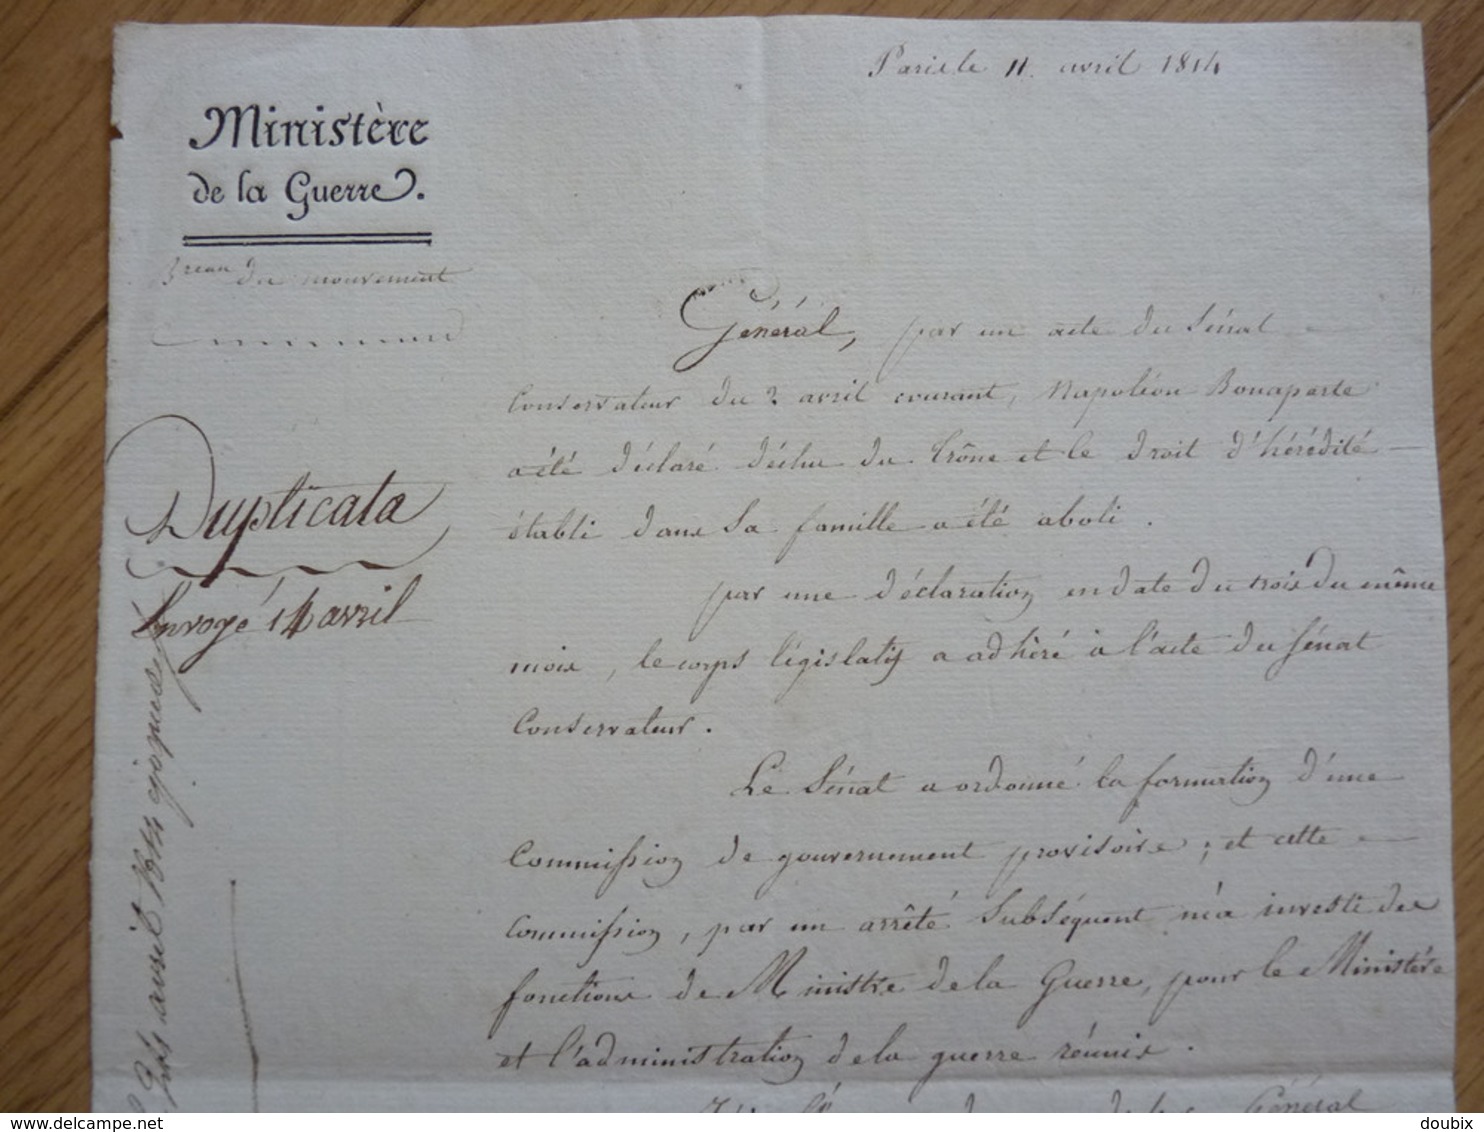 Paris le 11 avril 1814
Ministère
de la Guerre.
Breau du mouvement
Général, par un acte du Sénat
Conservateur du 2 avril courant, Napoléon Bonaparte
a été déclaré déchu du trône et le droit d'hérédité
établi dans sa famille a été aboli.
Duplicata
Envoyé 14 avril
par une déclaration en date du trois du même
mois, le corps législatif a adhéré à l'acte du Sénat
Conservateur.
Le Sénat a ordonné la formation d'une
Commission de gouvernement provisoire; et cette
Commission, par un arrêté subséquent m'a investi des
fonctions de Ministre de la Guerre, pour le Ministère
et l'administration de la guerre réunis.
Général
avril 1814
delcampe.net
doubix